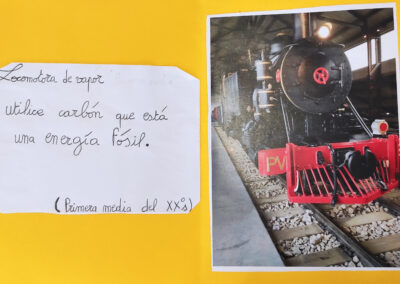 Locomotora de vapor
utilice carbón que está
una energía fósil.
(Primera media del XXs)
PV